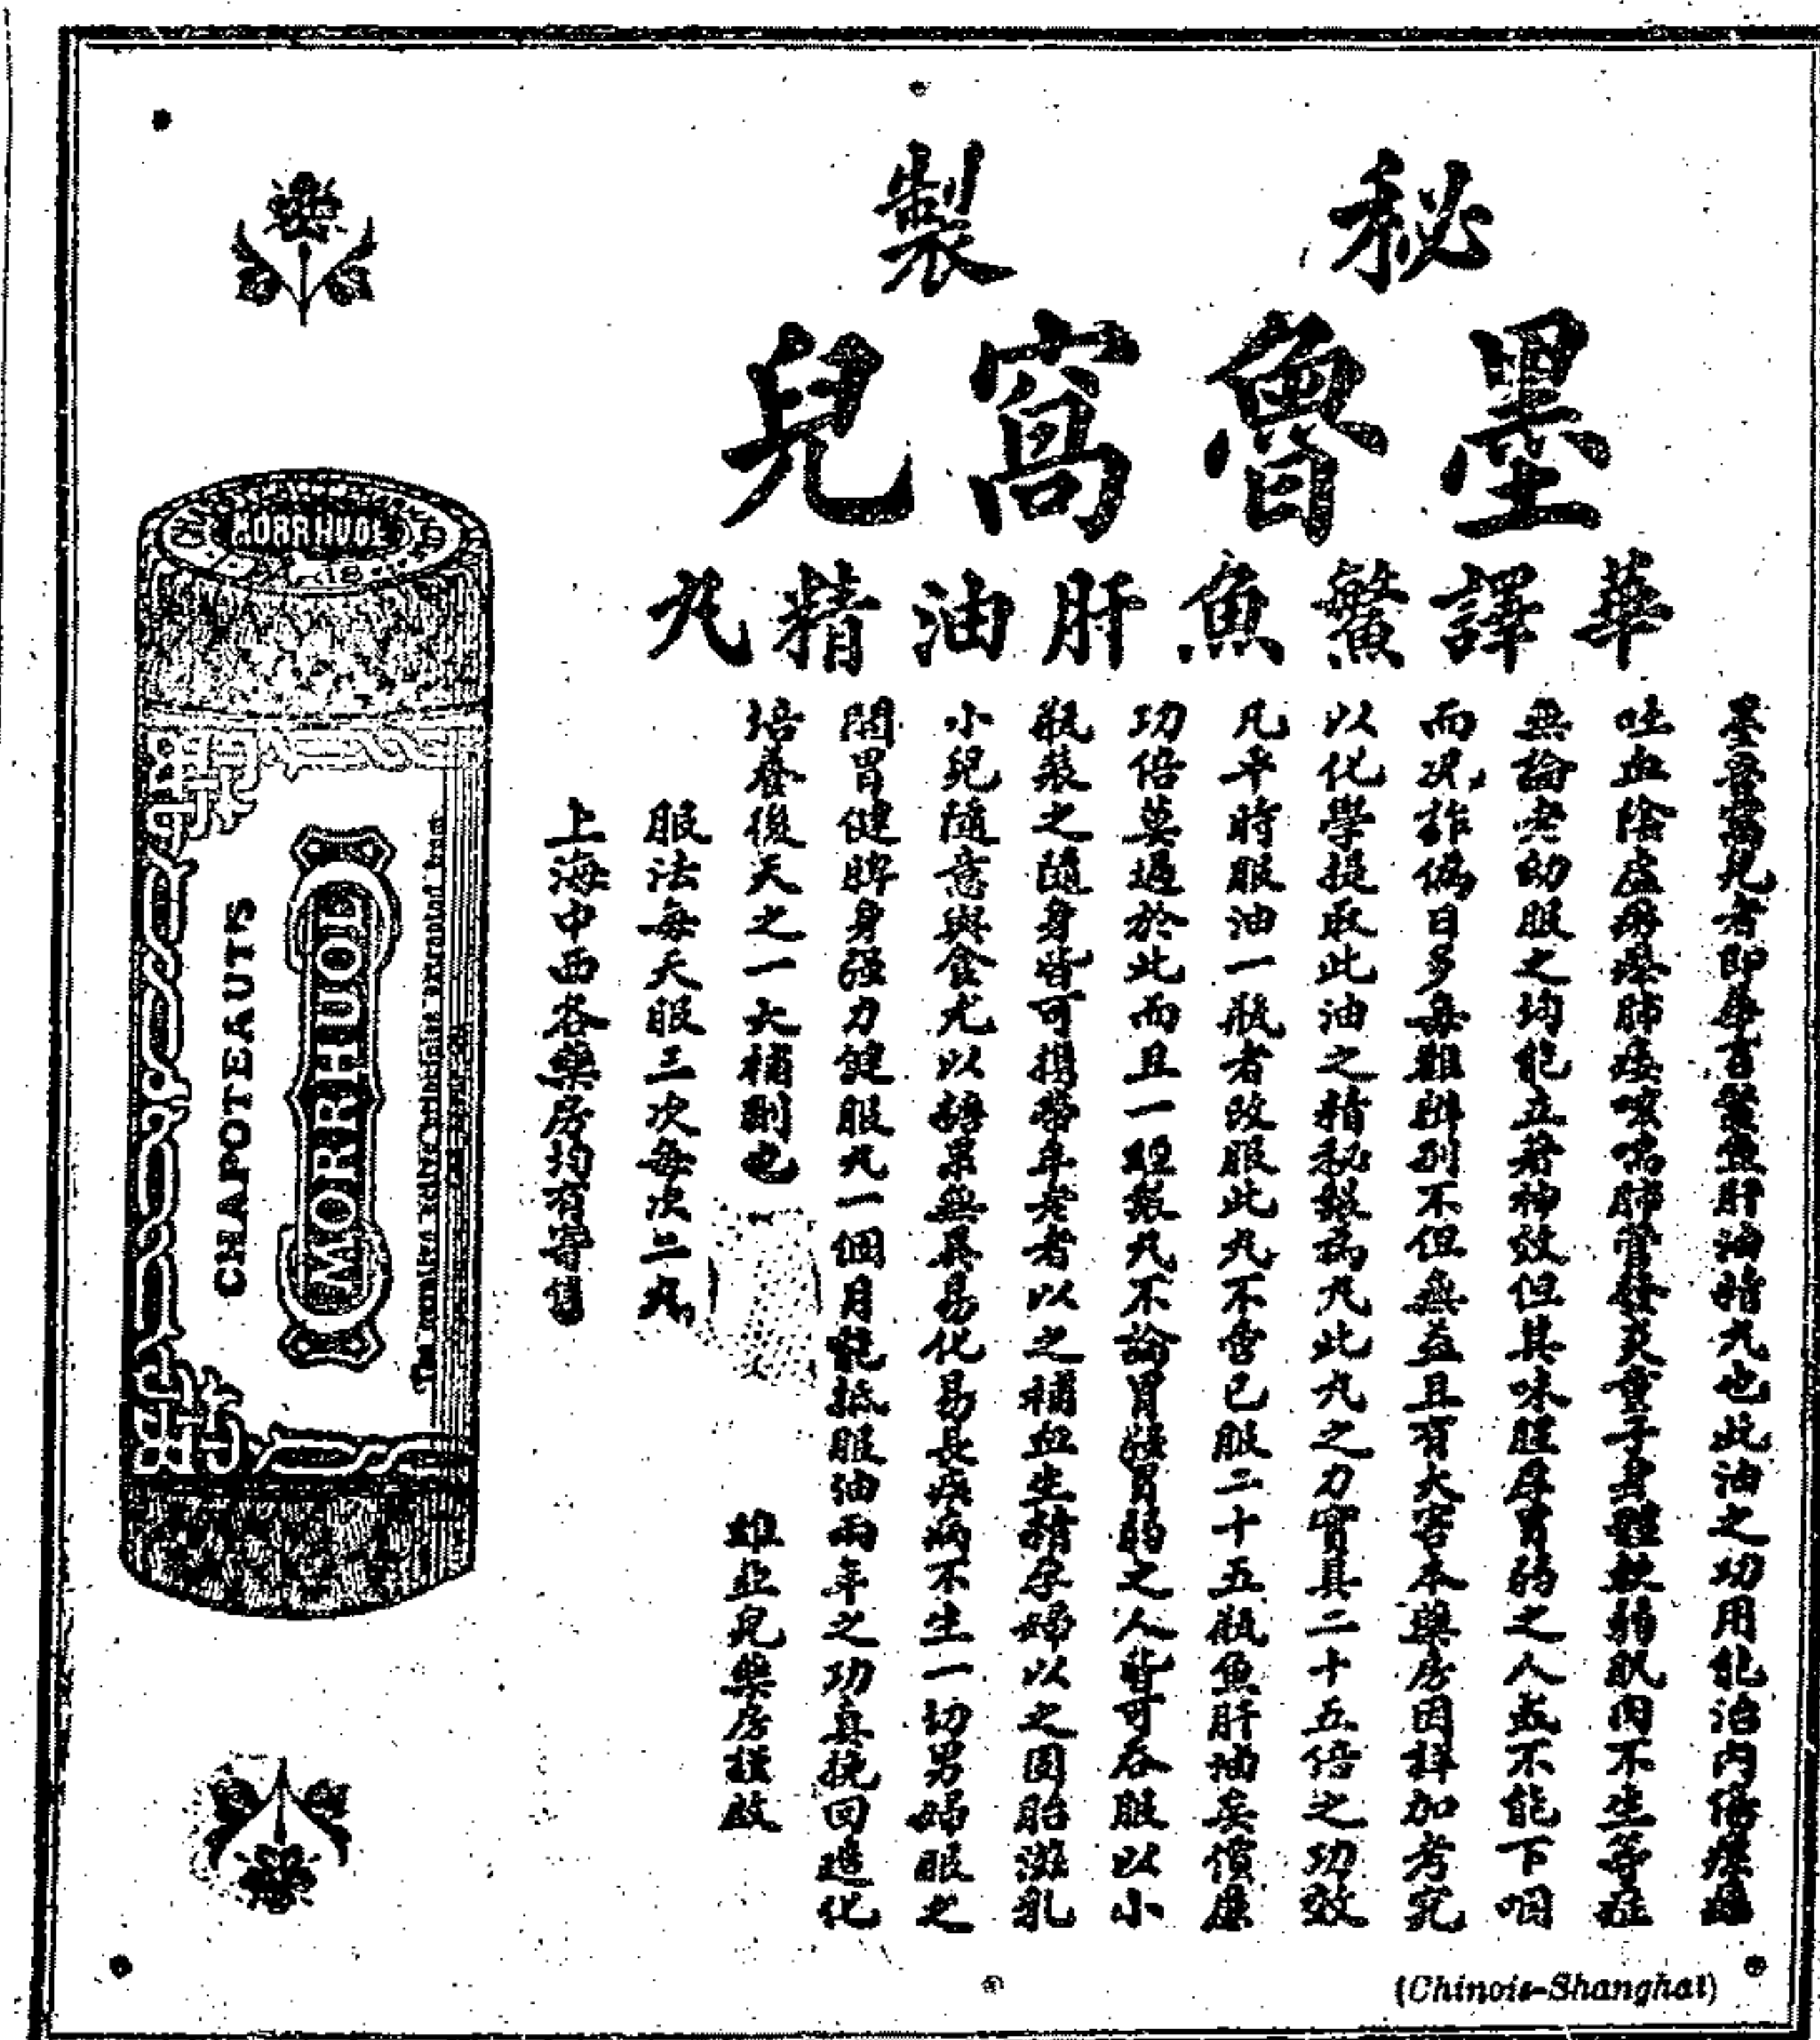 秘製
墨魯窩兒
華譯鰵魚肝油精丸
墨魯窩兒者即華言鰵魚肝油精丸也此油之功用能治內傷
吐血陰虛癆瘵肺痿咳嗆肺管發炎童子身體軟弱肌肉不生等症
無論老幼服之均能立著神效但其味腥厚胃弱之人並不能下咽
而况詐偽日多每難辨別不但無益且有大害本藥房因詳加考究
以化學提取此油之精秘製為丸此丸之力實具二十五倍之功效
凡平時服油一瓶者改服此丸不啻已服二十五瓶魚肝油矣價廉
功倍莫過於此而且一經製丸不論胃強胃弱之人皆可吞服以小
瓶裝之隨身皆可攜帶年老者以之補血生精孕婦以之固胎滋乳
小兒隨意與食尤以糖菓無異易化易長疾病不生一切男婦服之
開胃健脾身強力健服丸一個月能抵服油兩年之功真挽回造化
培養後天之一大補劑也
雄亞兒藥房謹啟
服法每天服三次每次三丸
上海中西各藥房均有寄售
MORRHUOL
CHAPOTEAUT'S
MORRHUOL
(Chinois-Shanghai)